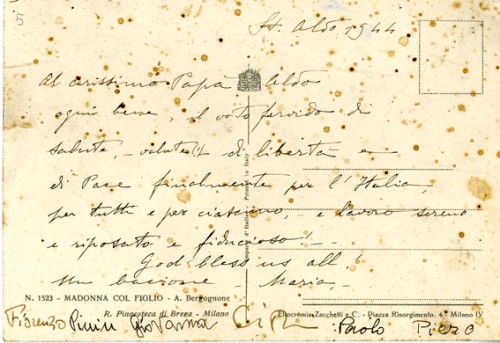 5
St. Aldo 1944
Al carissimo Papà Aldo
ogni bene, il voto fervido di
salute, - valute (!) di libertà e
di Pace finalmente per l'Italia,
per tutti e per ciascuno, - e lavoro sereno
e riposato e fiducioso! -
God bless us all!
Un bacione Maria -
N. 1523 - MADONNA COL FIGLIO - A. Bergognone
R. Pinacoteca di Brera - Milano
Eliocromia Zacchetti e C. - Piazza Risorgimento, 4 - Milano IV
Fiorenzo Pinin Giovanna Paolo Piero